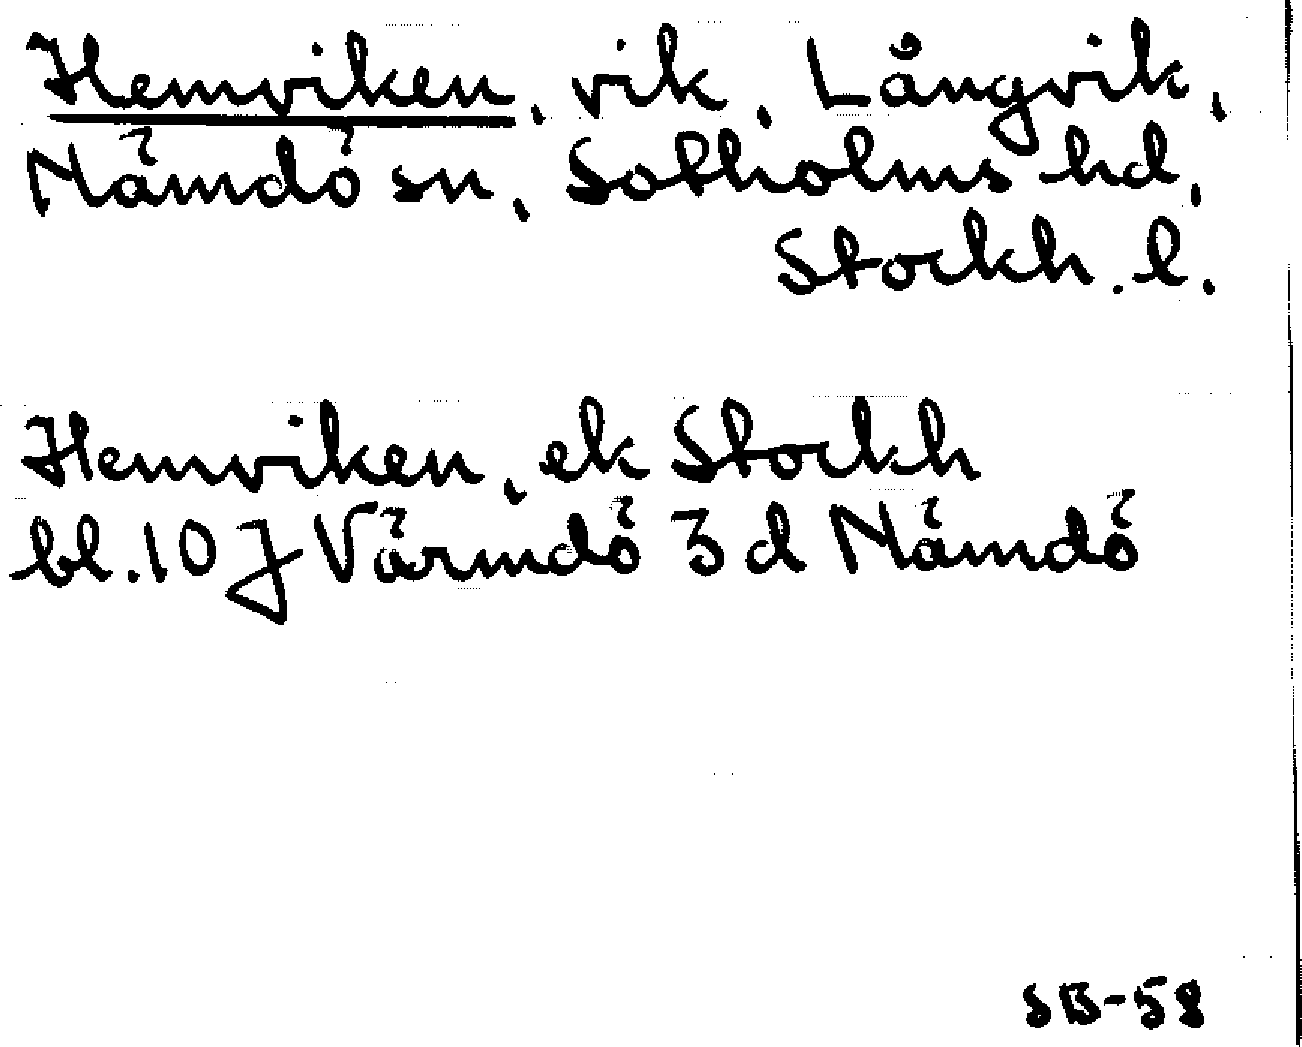 Hemviken, vik, Långvik,
Nämdö sn, Sotholms hd,
Stockh. l.
Hemviken, ek Stockh
bl. 10 J Värmdö 3 d Nämdö
SB-58